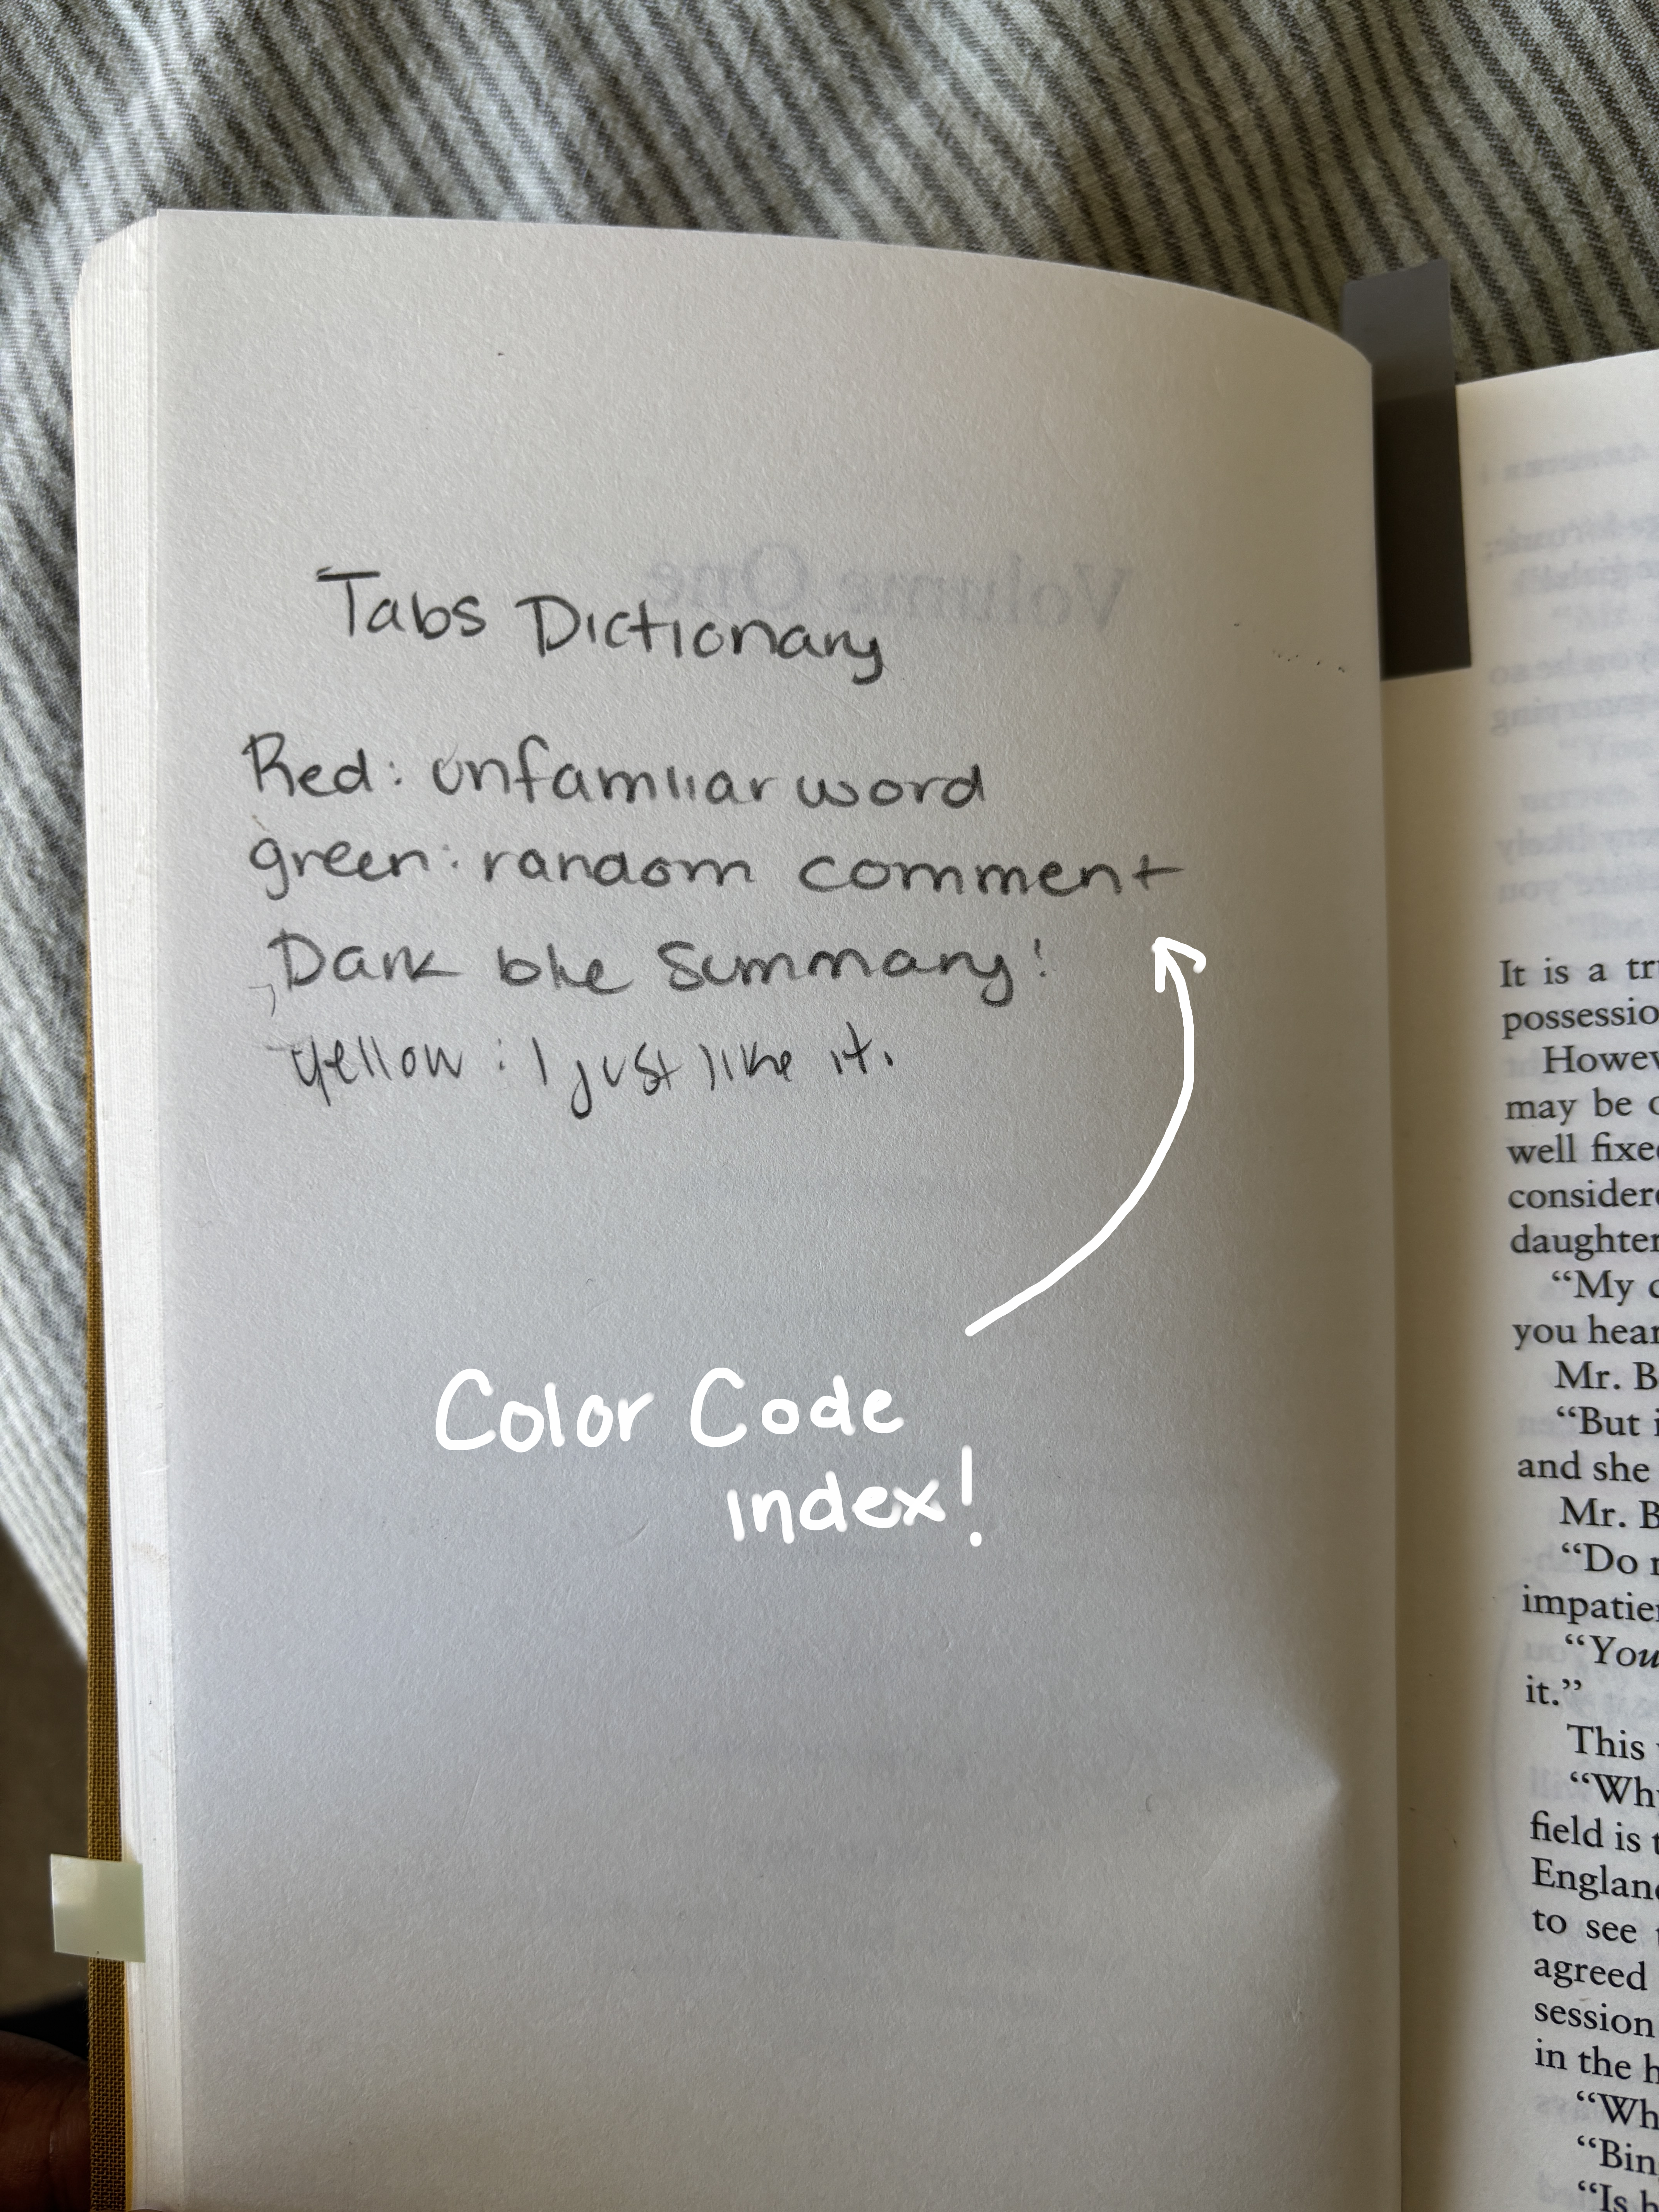 Tabs Dictionary
Red: unfamiliar word
green: random comment
Dark blue summary!
yellow: I just like it.
Color Code
index!
Volume One
It is a tr
possessio
Howev
may be o
well fixe
considere
daughter
“My c
you hear
Mr. B
“But i
and she
Mr. B
“Do n
impatie
“You
it.”
This
“Why
field is t
England
to see t
agreed
session
in the h
“Wh
“Bin
“Is h